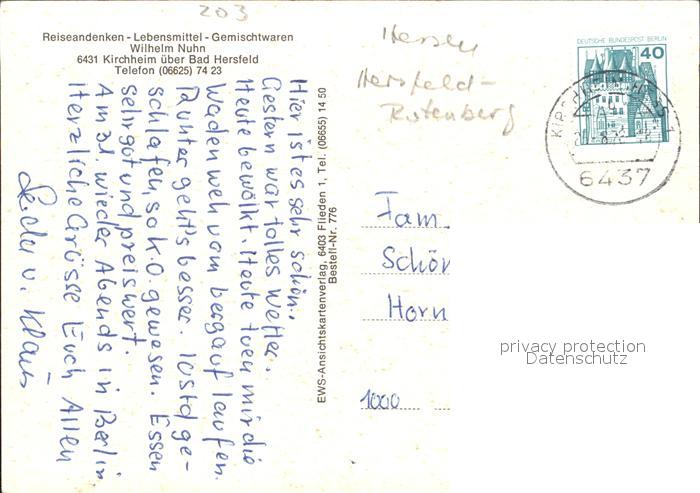 203
Reiseandenken - Lebensmittel - Gemischtwaren
Wilhelm Nuhn
6431 Kirchheim über Bad Hersfeld
Telefon (06625) 74 23
Hier ist es sehr schön.
Gestern war tolles Wetter.
Heute bewölkt. Heute tuen mir die
Waden weh vom bergauf laufen.
Runter geht's besser. 10 Std ge-
schlafen, so k.O. gewesen. Essen
sehr gut und preiswert.
Am 31. wieder Abends in Berlin
Herzliche Grüsse Euch Allen
v. Klaus
EWS-Ansichtskartenverlag, 6403 Flieden 1, Tel. (06655) 14 50
Bestell-Nr. 776
Hessen
Hersfeld-
Rotenberg
DEUTSCHE BUNDESPOST BERLIN
40
6437
Fam.
Schön
Horn
1000
privacy protection
Datenschutz